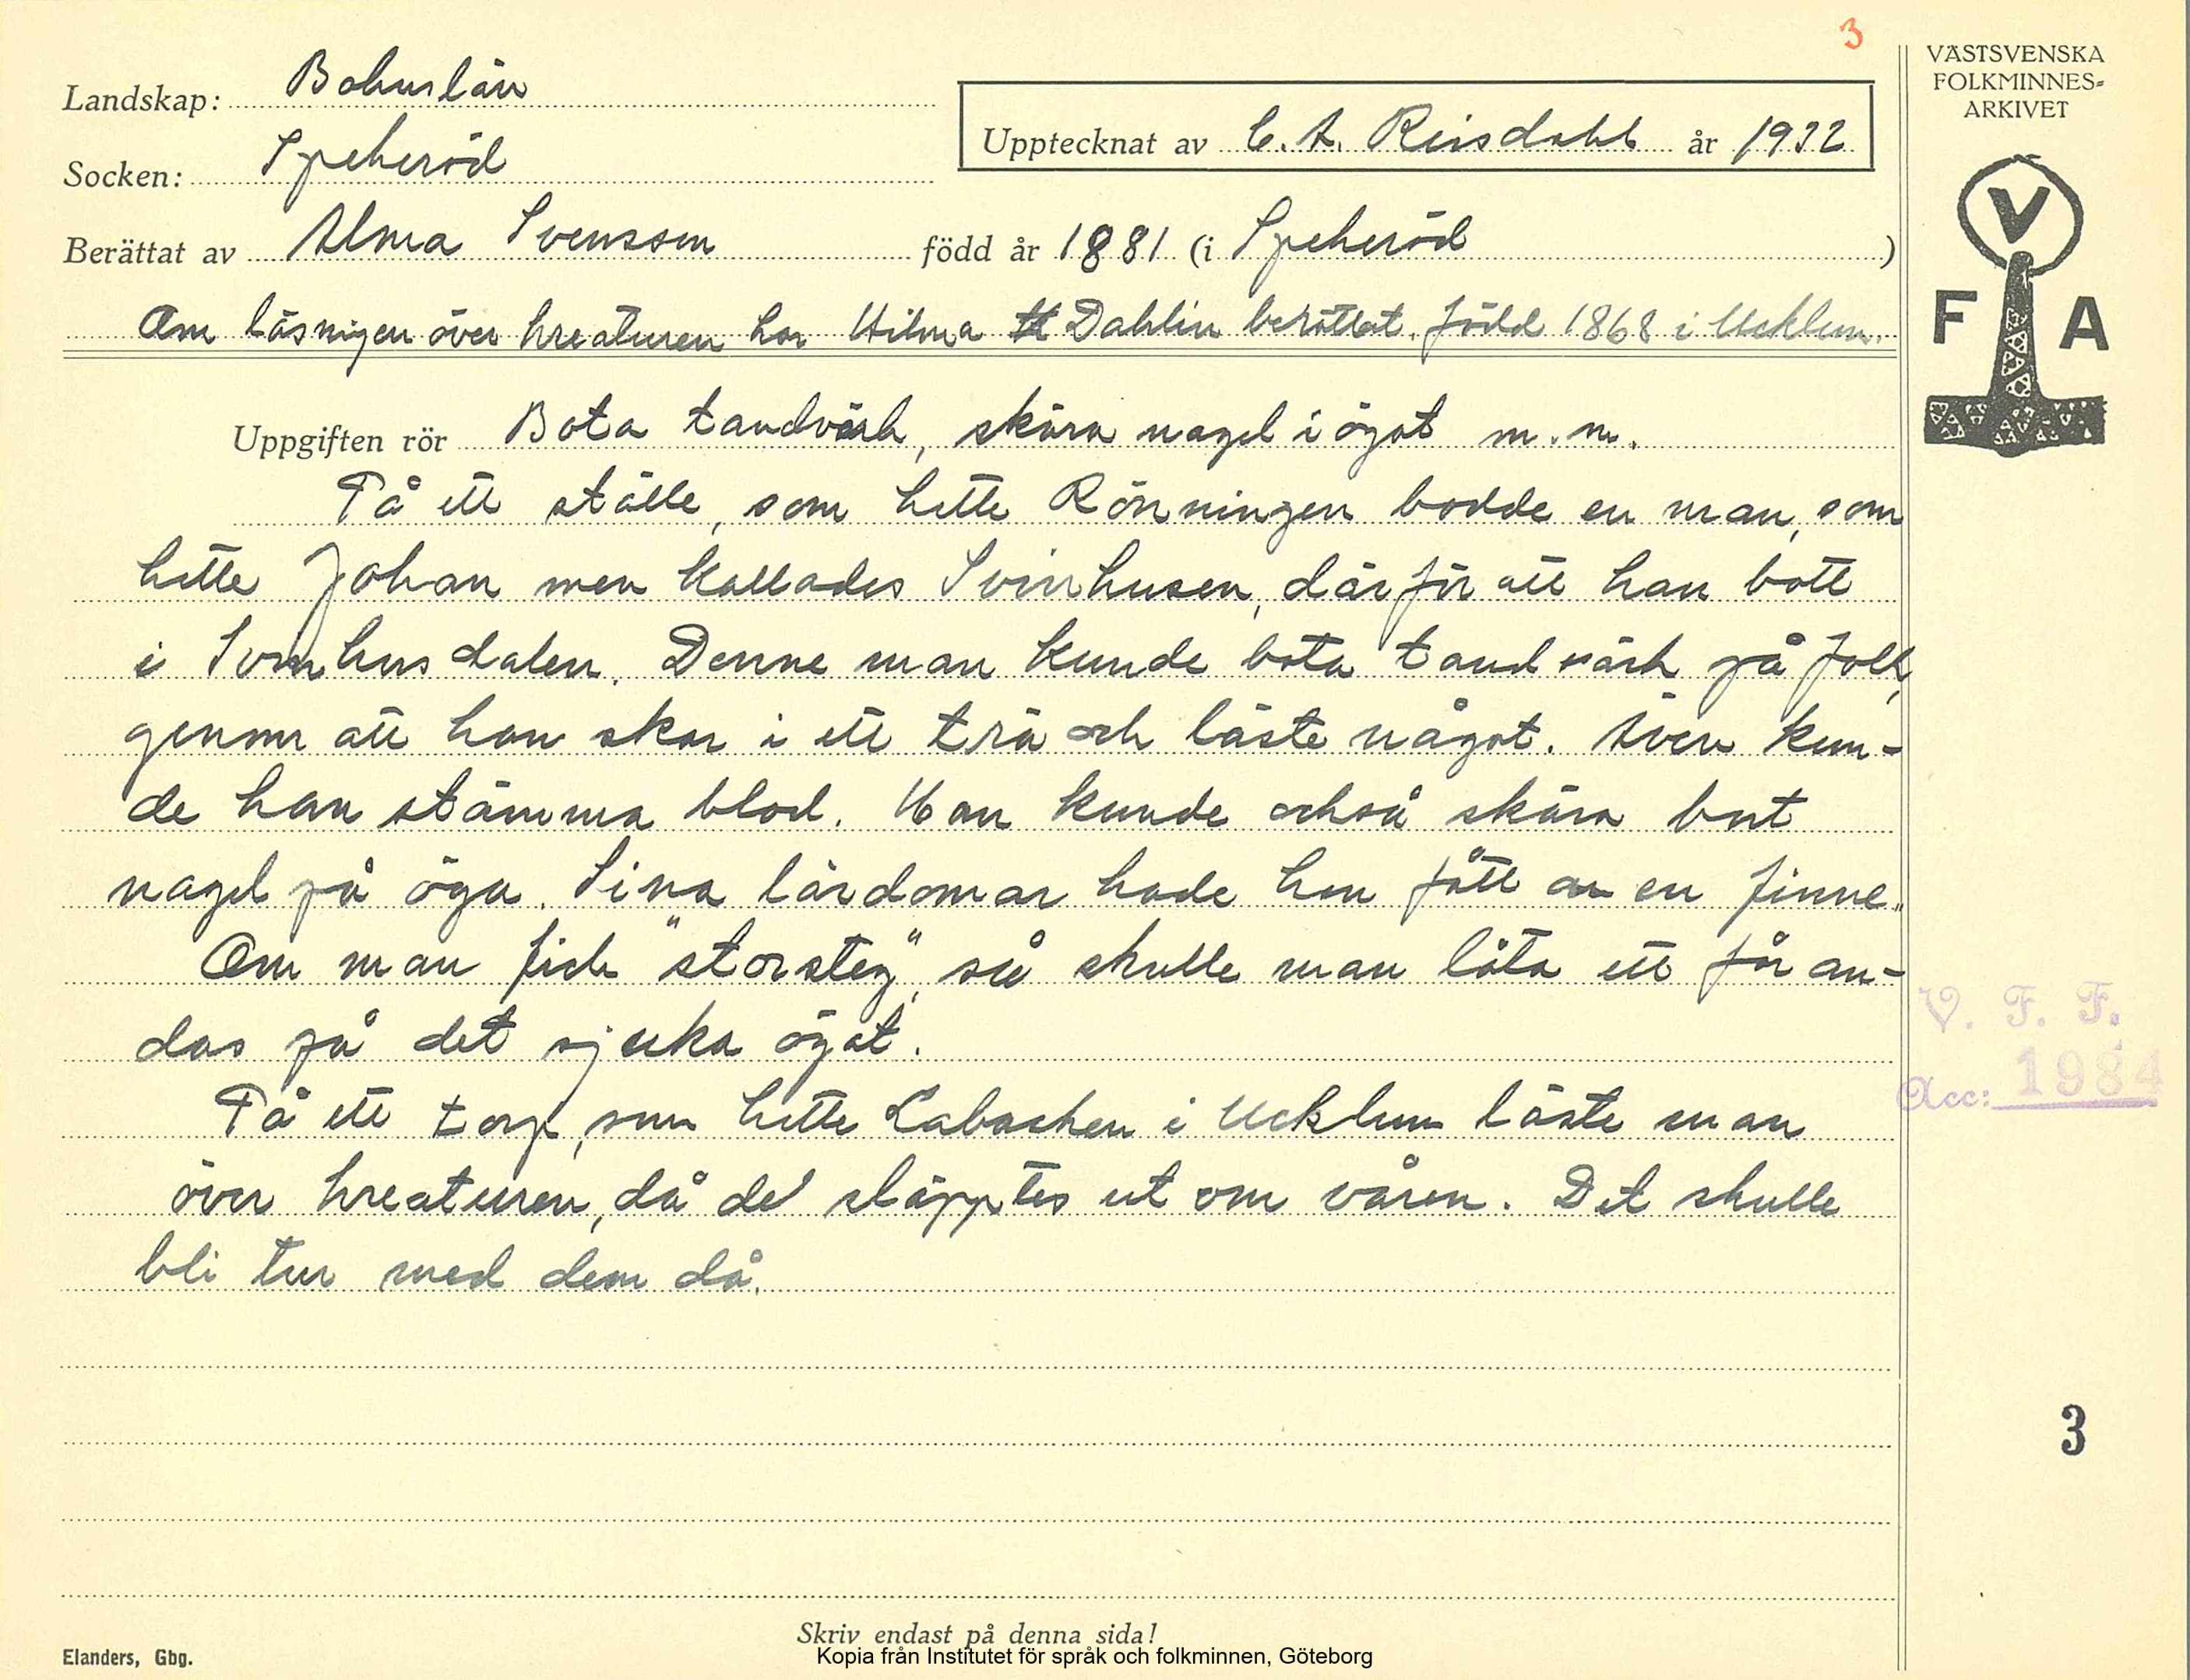 3
VÄSTSVENSKA
FOLKMINNES-
ARKIVET
Landskap: Bohuslän
Upptecknat av C. A. Reisdahl år 1932
Socken: Spekeröd
Berättat av Alma Svensson född år 1881 (i Spekeröd )
Om läsningen över kreaturen har Hilma Dahlin berättat. född 1868 i Ucklum.
V
F A
Uppgiften rör Bota tandvärk, skära nagel i ögat m. m.
På ett ställe, som hette Rönningen bodde en man, som
hette Johan men kallades Svinhusen, därför att han bott
i Svinhusdalen. Denne man kunde bota tandvärk på folk,
genom att han skar i ett trä och läste något. Även kun-
de han stämma blod. Han kunde också skära bort
nagel på öga. Sina lärdomar hade han fått av en finne.
Om man fick "storsteg", så skulle man låta ett får an-
das på det sjuka ögat.
V. F. F.
Acc: 1984
På ett torp, som hette Labacken i Ucklum läste man
över kreaturen, då de släpptes ut om våren. Det skulle
bli tur med dem då.
3
Skriv endast på denna sida!
Elanders, Gbg.
Kopia från Institutet för språk och folkminnen, Göteborg